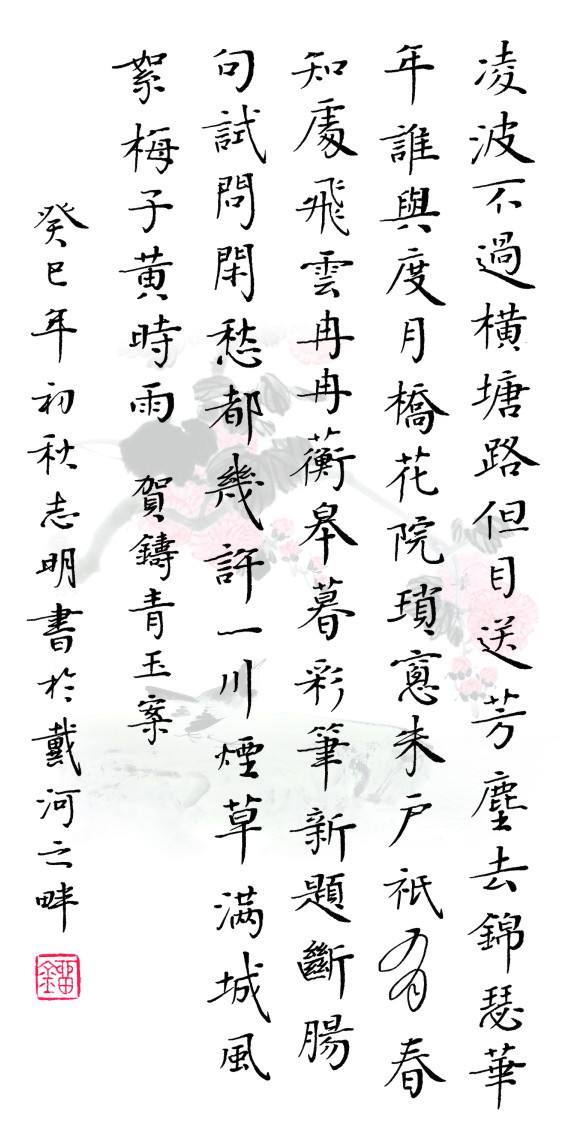 凌波不過橫塘路但目送芳塵去錦瑟華
年誰與度月橋花院瑣窻朱戶祇有春
知處飛雲冉冉蘅皋暮彩筆新題斷腸
句試問閑愁都幾許一川煙草满城風
絮梅子黃時雨 賀鑄青玉案
癸巳年初秋志明書於戴河之畔